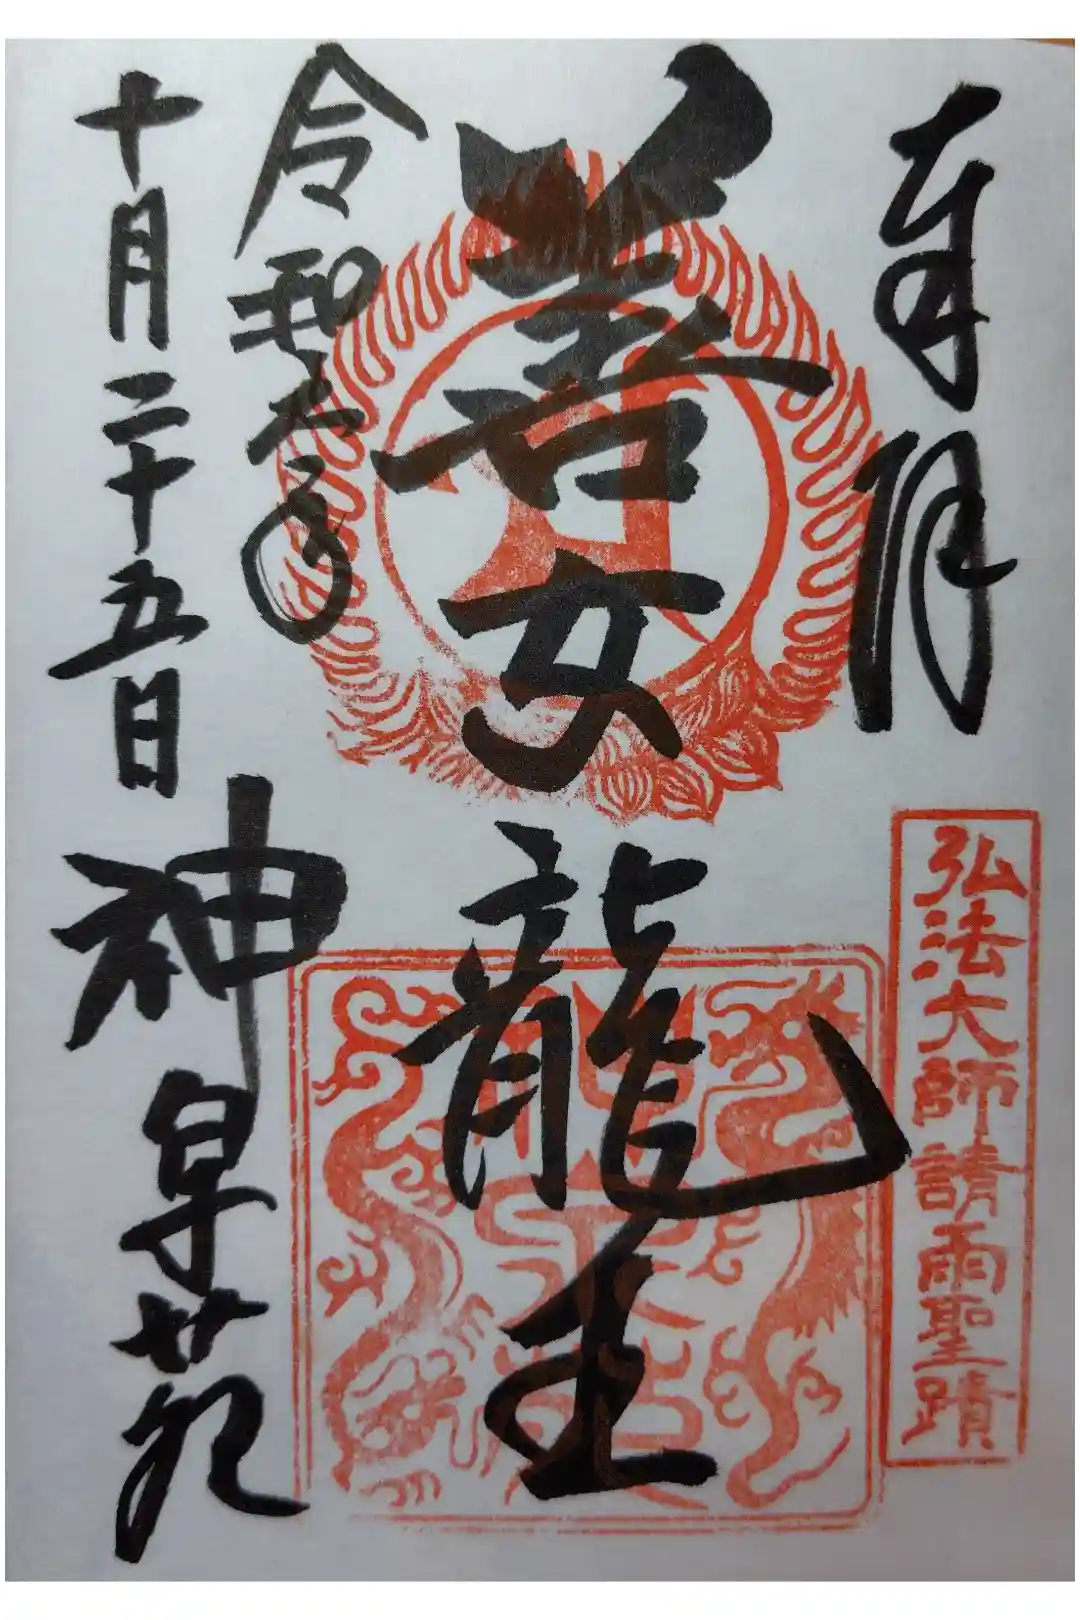 奉拝
弘法大師請雨聖蹟
善女龍王
令和元年
十月二十五日
神泉苑